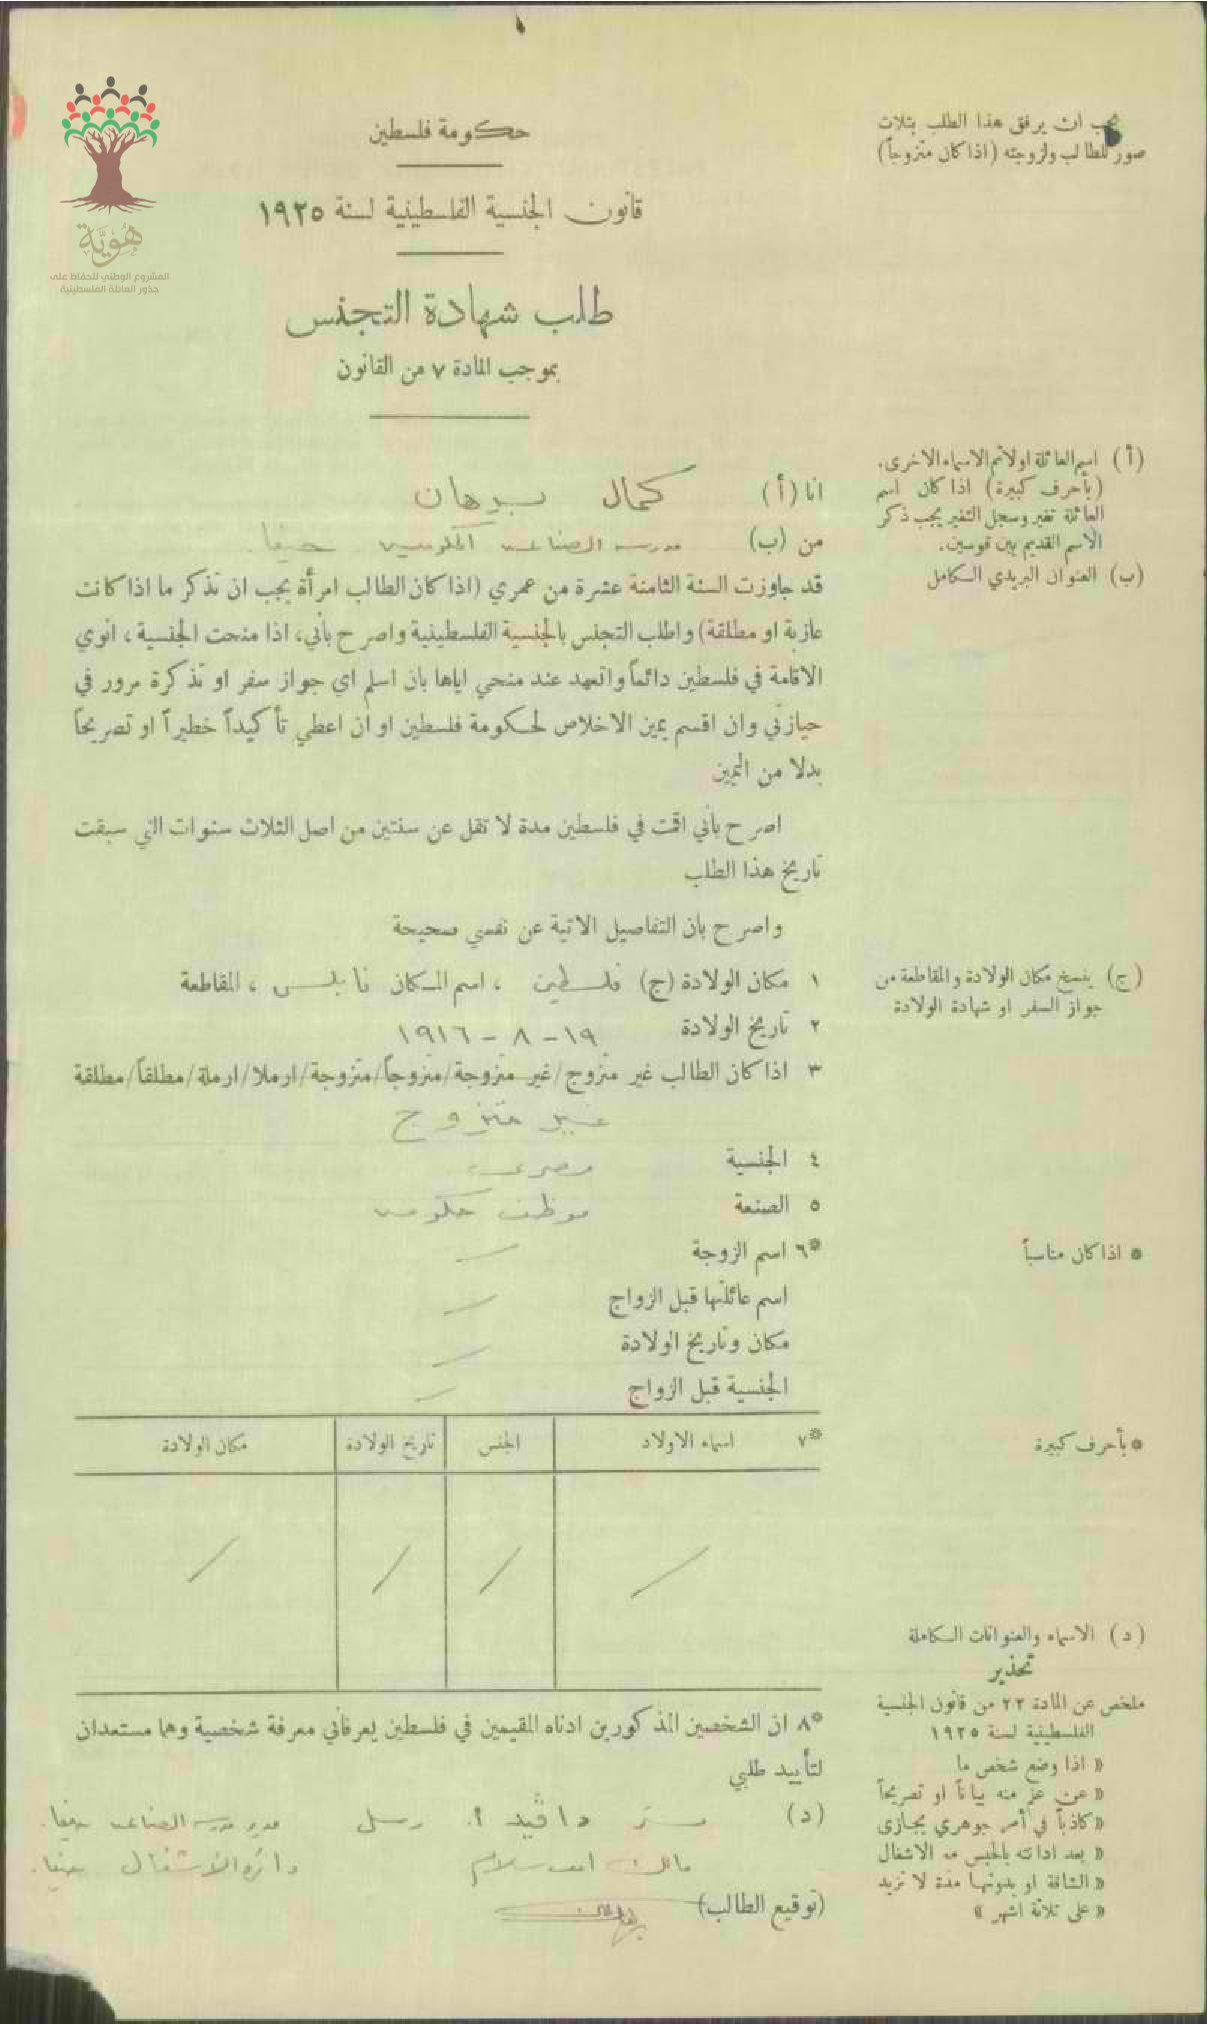 هُوِيَّة
المشروع الوطني للحفاظ على
جذور العائلة الفلسطينية
يجب ان يرفق هذا الطلب بثلاث
صور للطالب ولزوجته (اذا كان متزوجاً)
حكومة فلسطين
قانون الجنسية الفلسطينية لسنة ١٩٢٥
طلب شهادة التجنس
بموجب المادة ٧ من القانون
(أ) اسم العائلة اولا ثم الاسماء الاخرى.
(بأحرف كبيرة) اذا كان اسم
العائلة تغير وسجل التغير يجب ذكر
الاسم القديم بين قوسين.
(ب) العنوان البريدي الكامل
انا (أ) كمال برهان
من (ب) مدرسة الصناعة الحكومية حيفا.
قد جاوزت السنة الثامنة عشرة من عمري (اذا كان الطالب امرأة يجب ان تذكر ما اذا كانت
عازبة او مطلقة) واطلب التجنس بالجنسية الفلسطينية واصرح بأني، اذا منحت الجنسية، انوي
الاقامة في فلسطين دائماً واتعهد عند منحي اياها بان اسلم اي جواز سفر او تذكرة مرور في
حيازتي وان اقسم يمين الاخلاص لحكومة فلسطين او ان اعطي تأكيداً خطيراً او تصريحاً
بدلا من اليمين
اصرح بأني اقمت في فلسطين مدة لا تقل عن سنتين من اصل الثلاث سنوات التي سبقت
تاريخ هذا الطلب
واصرح بان التفاصيل الاتية عن نفسي صحيحة
(ج) ينسخ مكان الولادة والمقاطعة من
جواز السفر او شهادة الولادة
١ مكان الولادة (ج) فلسطين ، اسم المكان نابلس ، المقاطعة
٢ تاريخ الولادة ١٩-٨-١٩١٦
٣ اذا كان الطالب غير متزوج/غير متزوجة/متزوجاً/متزوجة/ارملا/ارملة/مطلقاً/مطلقة
غير متزوج
٤ الجنسية مصري
٥ الصنعة موظف حكومة
* اذا كان مناسباً
*٦ اسم الزوجة —
اسم عائلتها قبل الزواج —
مكان وتاريخ الولادة —
الجنسية قبل الزواج —
* بأحرف كبيرة
*٧ اسماء الاولاد الجنس تاريخ الولادة مكان الولادة
/ / / /
(د) الاسماء والعنوانات الكاملة
تحذير
ملخص عن المادة ٢٢ من قانون الجنسية
الفلسطينية لسنة ١٩٢٥
« اذا وضع شخص ما
« عن علم منه بياناً او تصريحاً
« كاذباً في أمر جوهري يجازى
« بعد ادانته بالحبس مع الاشغال
« الشاقة او بدونها مدة لا تزيد
« على ثلاثة اشهر »
*٨ ان الشخصين المذكورين ادناه المقيمين في فلسطين يعرفاني معرفة شخصية وهما مستعدان
لتأييد طلبي
(د) مستر داڤيد أ. رسل مدير مدرسة الصناعة حيفا.
دائرة الاشغال حيفا.
(توقيع الطالب)